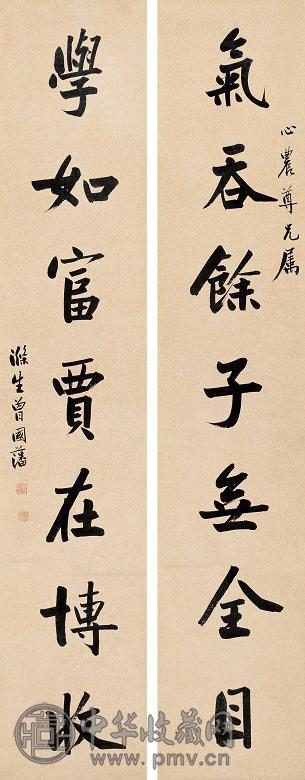 心農尊兄属
氣吞餘子無全目
學如富賈在博收
滌生曾國藩
中华收藏网
www.pmv.cn